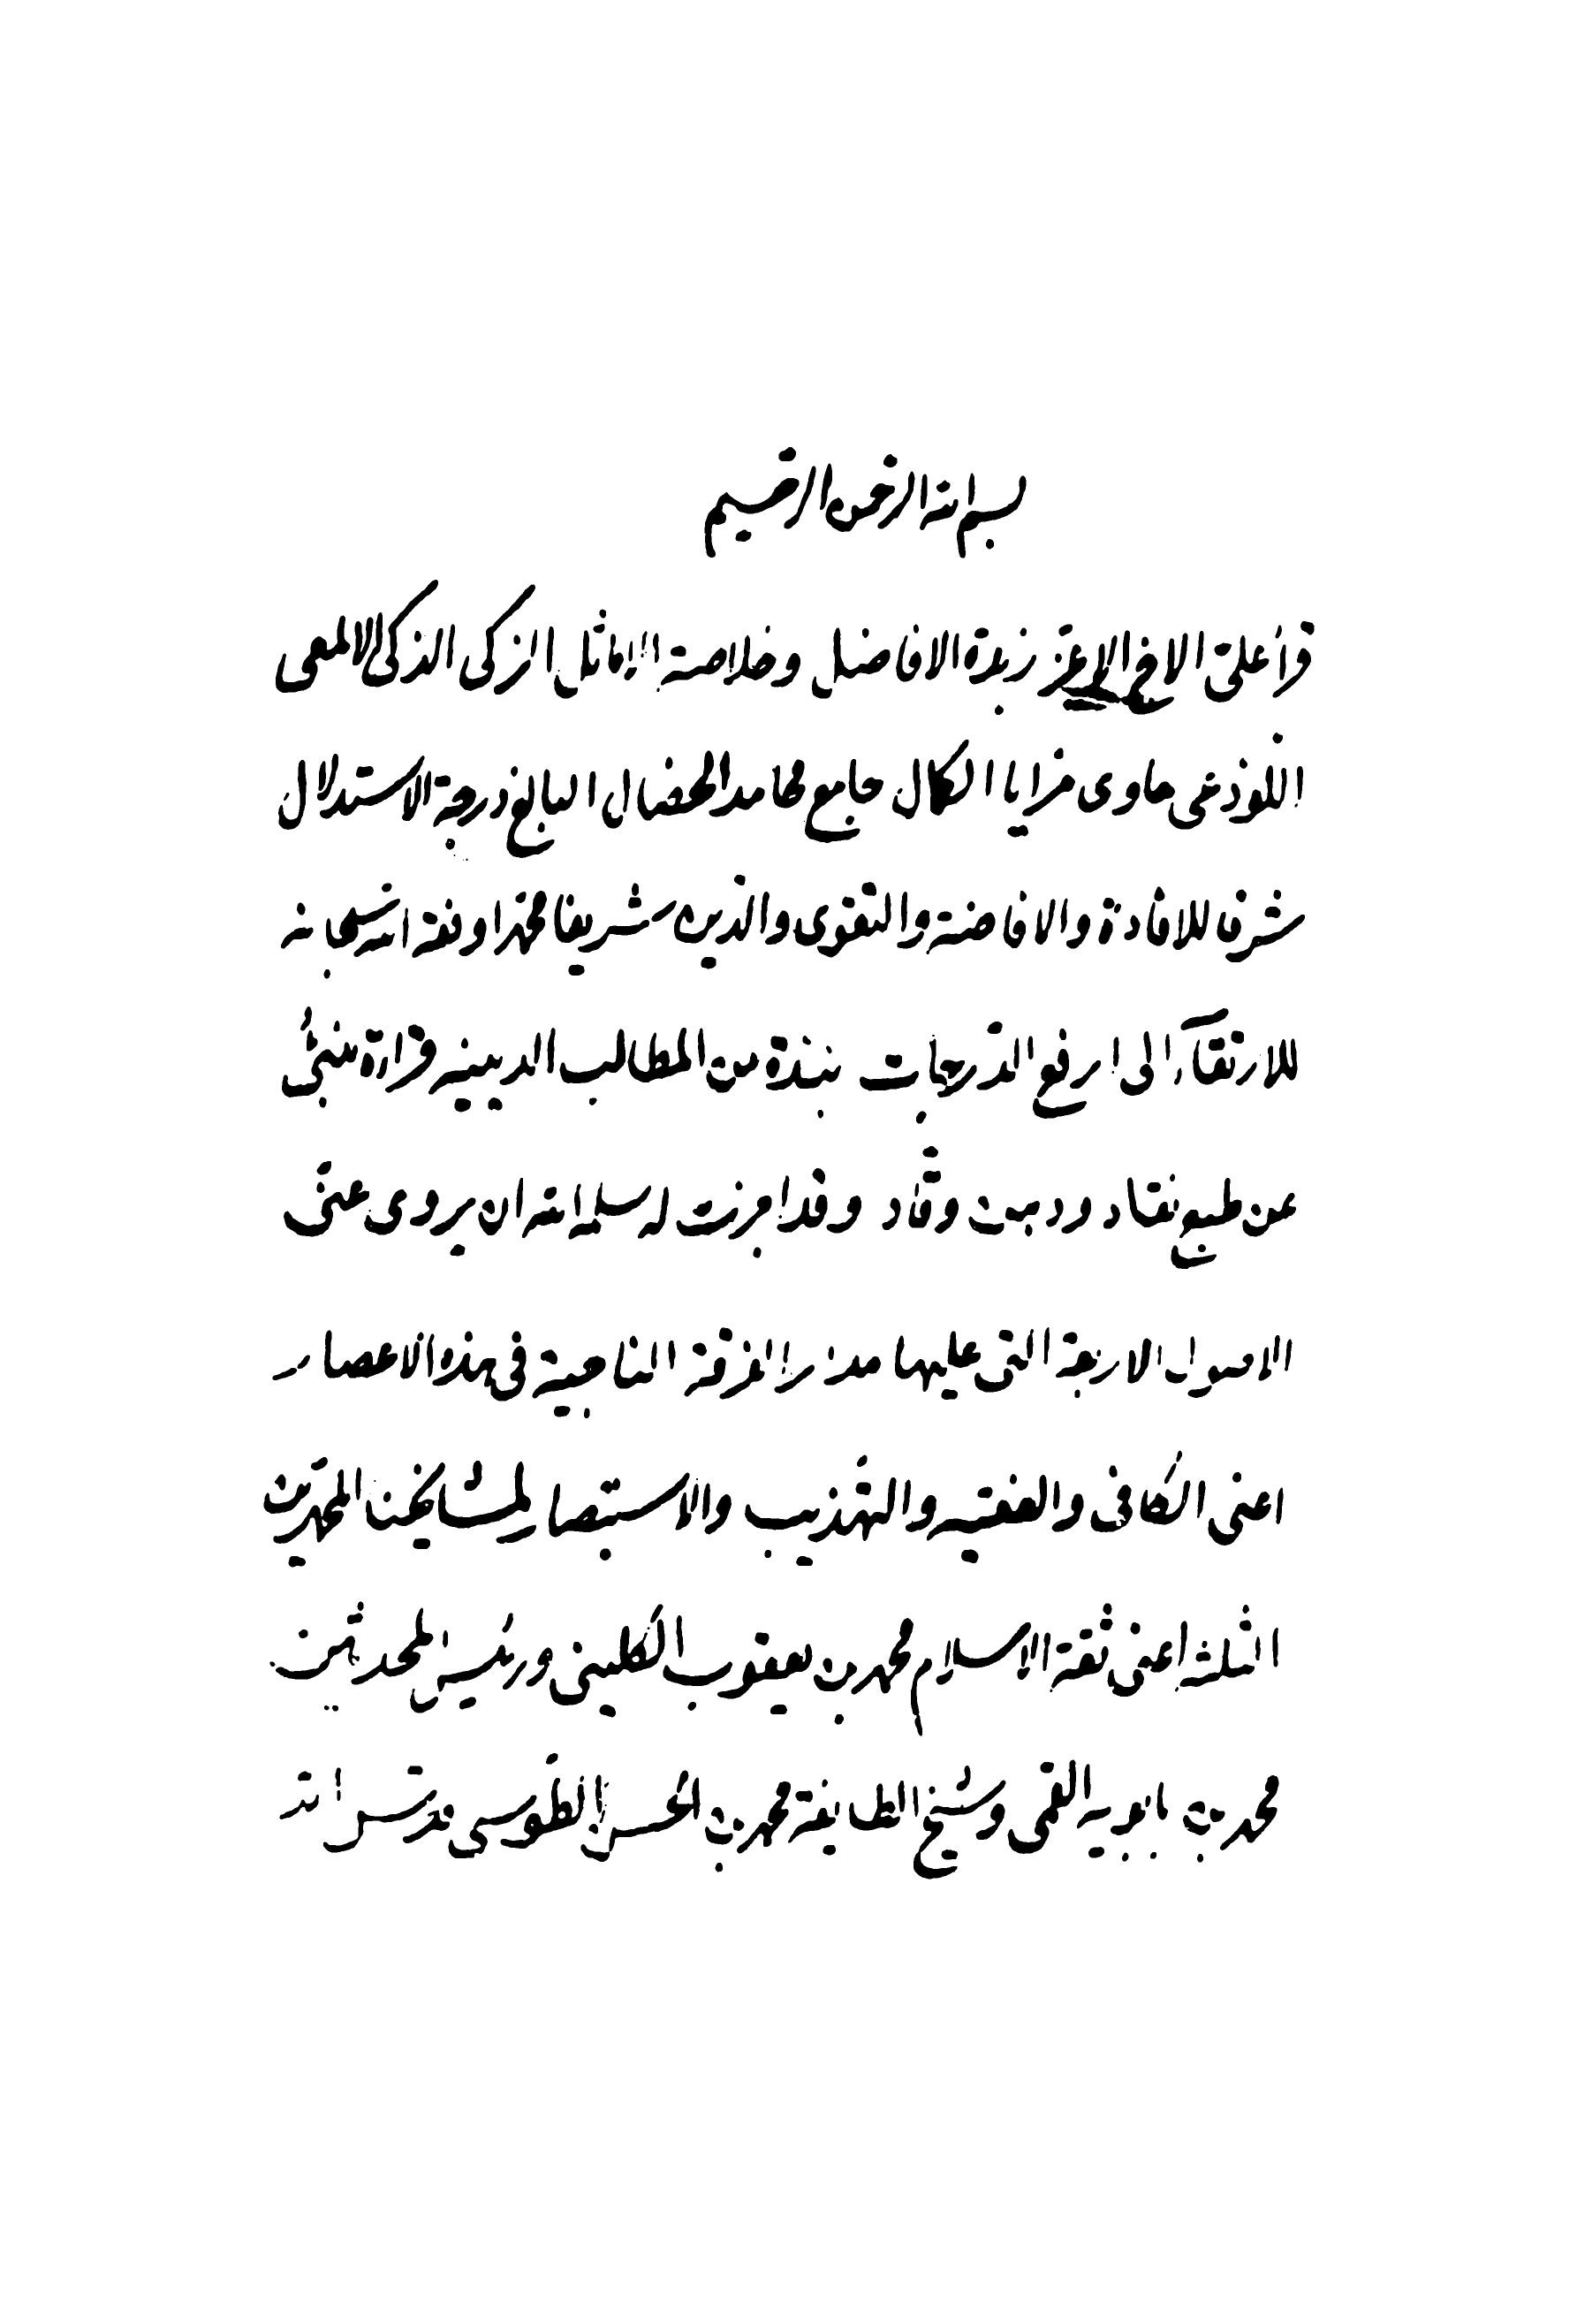 بسم الله الرحمن الرحيم
قرأ علىّ الاخ الاعز زبدة الافاضل وخلاصة الاماثل الزكى الذكى الالمعى
اللوذعى حاوى مزايا الكمال جامع محامد الخصال البالغ درجة الاستدلال
شرفا للافادة والافاضة والتقوى والدين شريفا محمدا وفقه الله سبحانه
للارتقآء الى ارفع الدرجات نبذة من المطالب الدينيه قراءة تنبئ
عن طبع نقاد وذهن وقّاد وقد اجزت له سلمه الله ان يروى عنى
الاصول الاربعة التى عليها مدار الفرقة الناجية فى هذه الاعصار
اعنى الكافى والفقيه والتهذيب والاستبصار لمشايخنا المحمدين
الثلثه اعنى ثقة الاسلام محمد بن يعقوب الكلينى ورئيس المحدثين
محمد بن بابويه القمى وشيخ الطايفة محمد بن الحسن الطوسى قدس الله